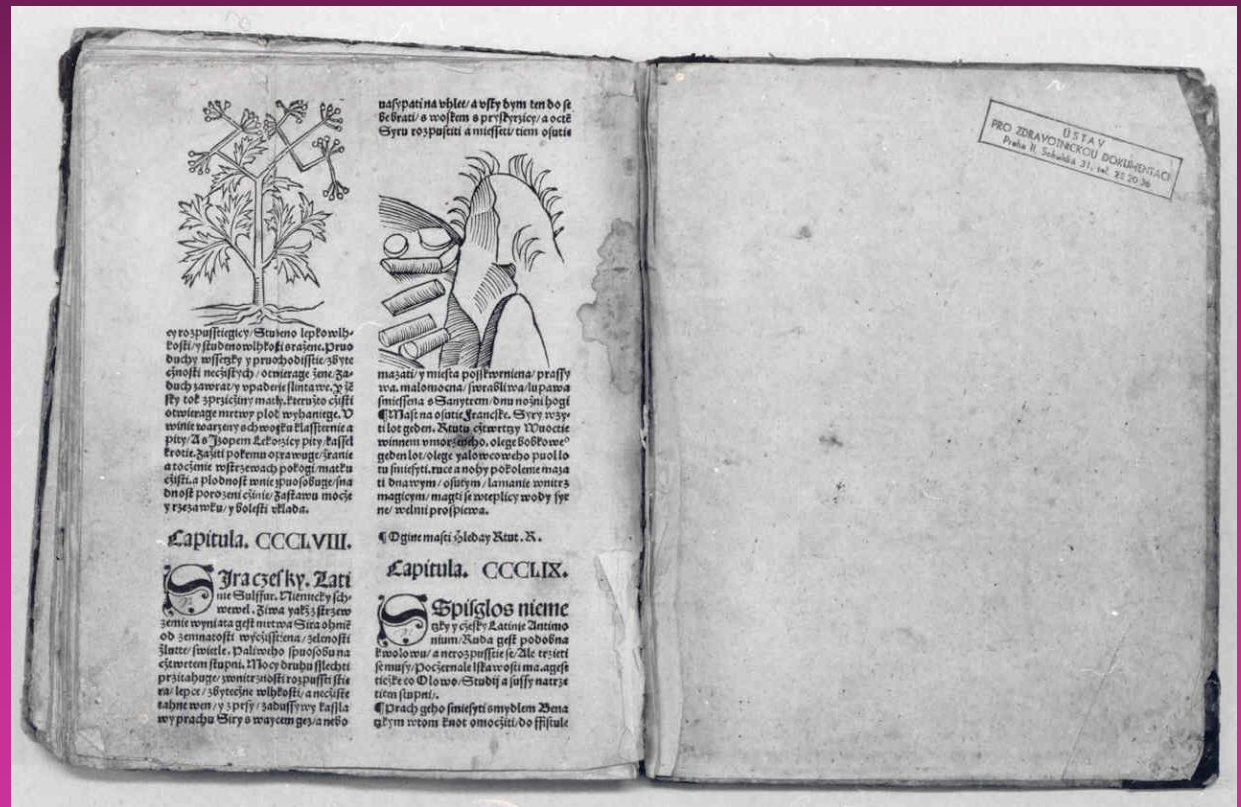 cy rozpusstiegicy/ Studeno lepkowlh-
kosti/ y studenowlhkosti sražene. Pruo
duchy wssetzky y pruochodisstie/ zbyte
cžnosti necžistych/ otwierage žene/ Za-
duch zawrat/ y vpadenie slintawe.
sky tok zpržicžiny matky. kteružto cžisti
otwierage mrtwy plod wyhaniege. V
winie warzeny s
pity/ A s Jzopem Lekorzicy pity/ kassel
krotie. Zažiti pokrmu oprawuge/ žranie
a tocženie wstrzewach pokogi/ matku
cžisti. a plodnost wnie zpuosobuge/ sna
dnost porozeni cžinie/ Zastawu mocže
y rzezawku/ y bolesti vklada.
Capitula. CCCLVIII.
SJra czesky. Lati
nie Sulffur. Niemetzky sch-
wewel. Ziwa yakž z strzew
zemie wyniata gest mrtwa Sira ohnie
od zemnatosti wycžisstiena/ zelenosti
žlutte/ swietle. Paliweho spuosobu na
cžtwrtem stupni. Mocy druhu sslechti
pržitahuge/ zwnitrznosti rozpussti
ra/ lepce/ zbytecžne wlhkosti/ a necžiste
tahne wen/ y z prsy/ zadussywy kassla
wy prachu Siry s waycem gez/ a nebo
nasypati na vhlee/ a wsky dym ten do se
be brati/ s woskem s pryskyrzicy/ a octě
Syru rozpustiti a miesseti/ tiem osutie
mazati/ y miesta posskwrniena/ prassy
wa. malomocna/ swrabliwa/ lupawa
smiessena s Sanytrem/ dnu nožni hogi
¶ Mast na osutie Francske. Syry wzy-
ti lot geden. Rtutu cžtwrtzy Wuoctie
winnem vmorzeneho. olege bobkoweº
geden lot/ olege yalowcoweho puol lo
tu smiesyti. ruce a nohy pokolene maza
ti dnawym/ osutym/ lamanie wnitrz
magicym/ magti se wteplicy wody syr
ne/ welmi prospiewa.
¶ O gine masti Hleday Rtut. R.
Capitula. CCCLIX.
SSpisglos nieme
tzky y cžesky Latinie Antimo
nium/ Ruda gest podobna
k wolowu/ a nerozpusstie se/ Ale trzieti
se musy/ Pocžernale lskawosti ma. a gest
tiežke co Olowo/ Studij a sussy na trze
tiem stupni/.
¶ Prach geho smiesyti s mydlem Bena
tzkym wtom knot omocžiti/ do ffistule
ÚSTAV
PRO ZDRAVOTNICKOU DOKUMENTACI
Praha II, Sokolská 31, tel. 22 20 36